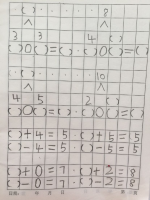 ( ) · · · · · · 8
∧ ∧
3 3 4 ( )
( )○( )=( ) · ( )○( )=( )
· ( ) · · · · · · 10
∧ ∧
4 5 2 ( )
( )○( )=( ) · ( )○( )=( )
( )+4=5 · ( )+5=5
( )-4=5 · ( )-5=5
( )+0=7 · ( )+2=8
( )-0=7 · ( )-2=8